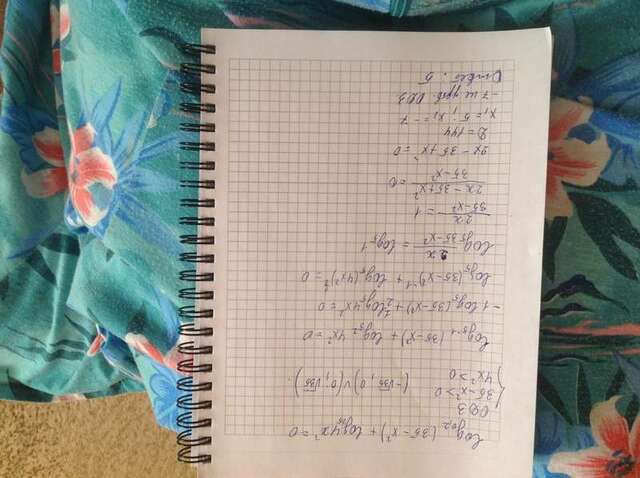 log₀,₂ (35-x²) + log₂₅ 4x² = 0
ОДЗ
35-x²>0
4x²>0 (-√35; 0) ∨ (0; √35)
log₅₋₁ (35-x²) + log₅₂ 4x² = 0
-1 log₅ (35-x²) + ½ log₅ 4x² = 0
log₅ (35-x²)⁻¹ + log₅ (4x²)^½ = 0
log₅ 2x/(35-x²) = log₅ 1
2x/(35-x²) = 1
(2x - 35 + x²)/(35-x²) = 0
2x - 35 + x² = 0
D = 144
x₁ = 5; x₂ = -7
-7 не удов. ОДЗ
Ответ: 5